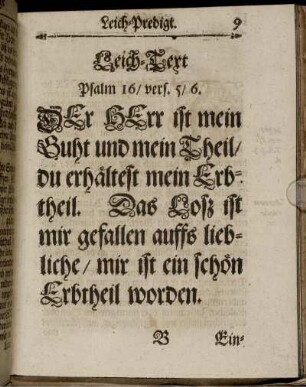 Leich-Predigt. 9
Leich-Text
Psalm 16/ vers. 5/6.
DEr HErr ist mein
Guht und mein Theil/
du erhältest mein Erb-
theil. Das Losz ist
mir gefallen auffs lieb-
liche/ mir ist ein schön
Erbtheil worden.
B Ein-